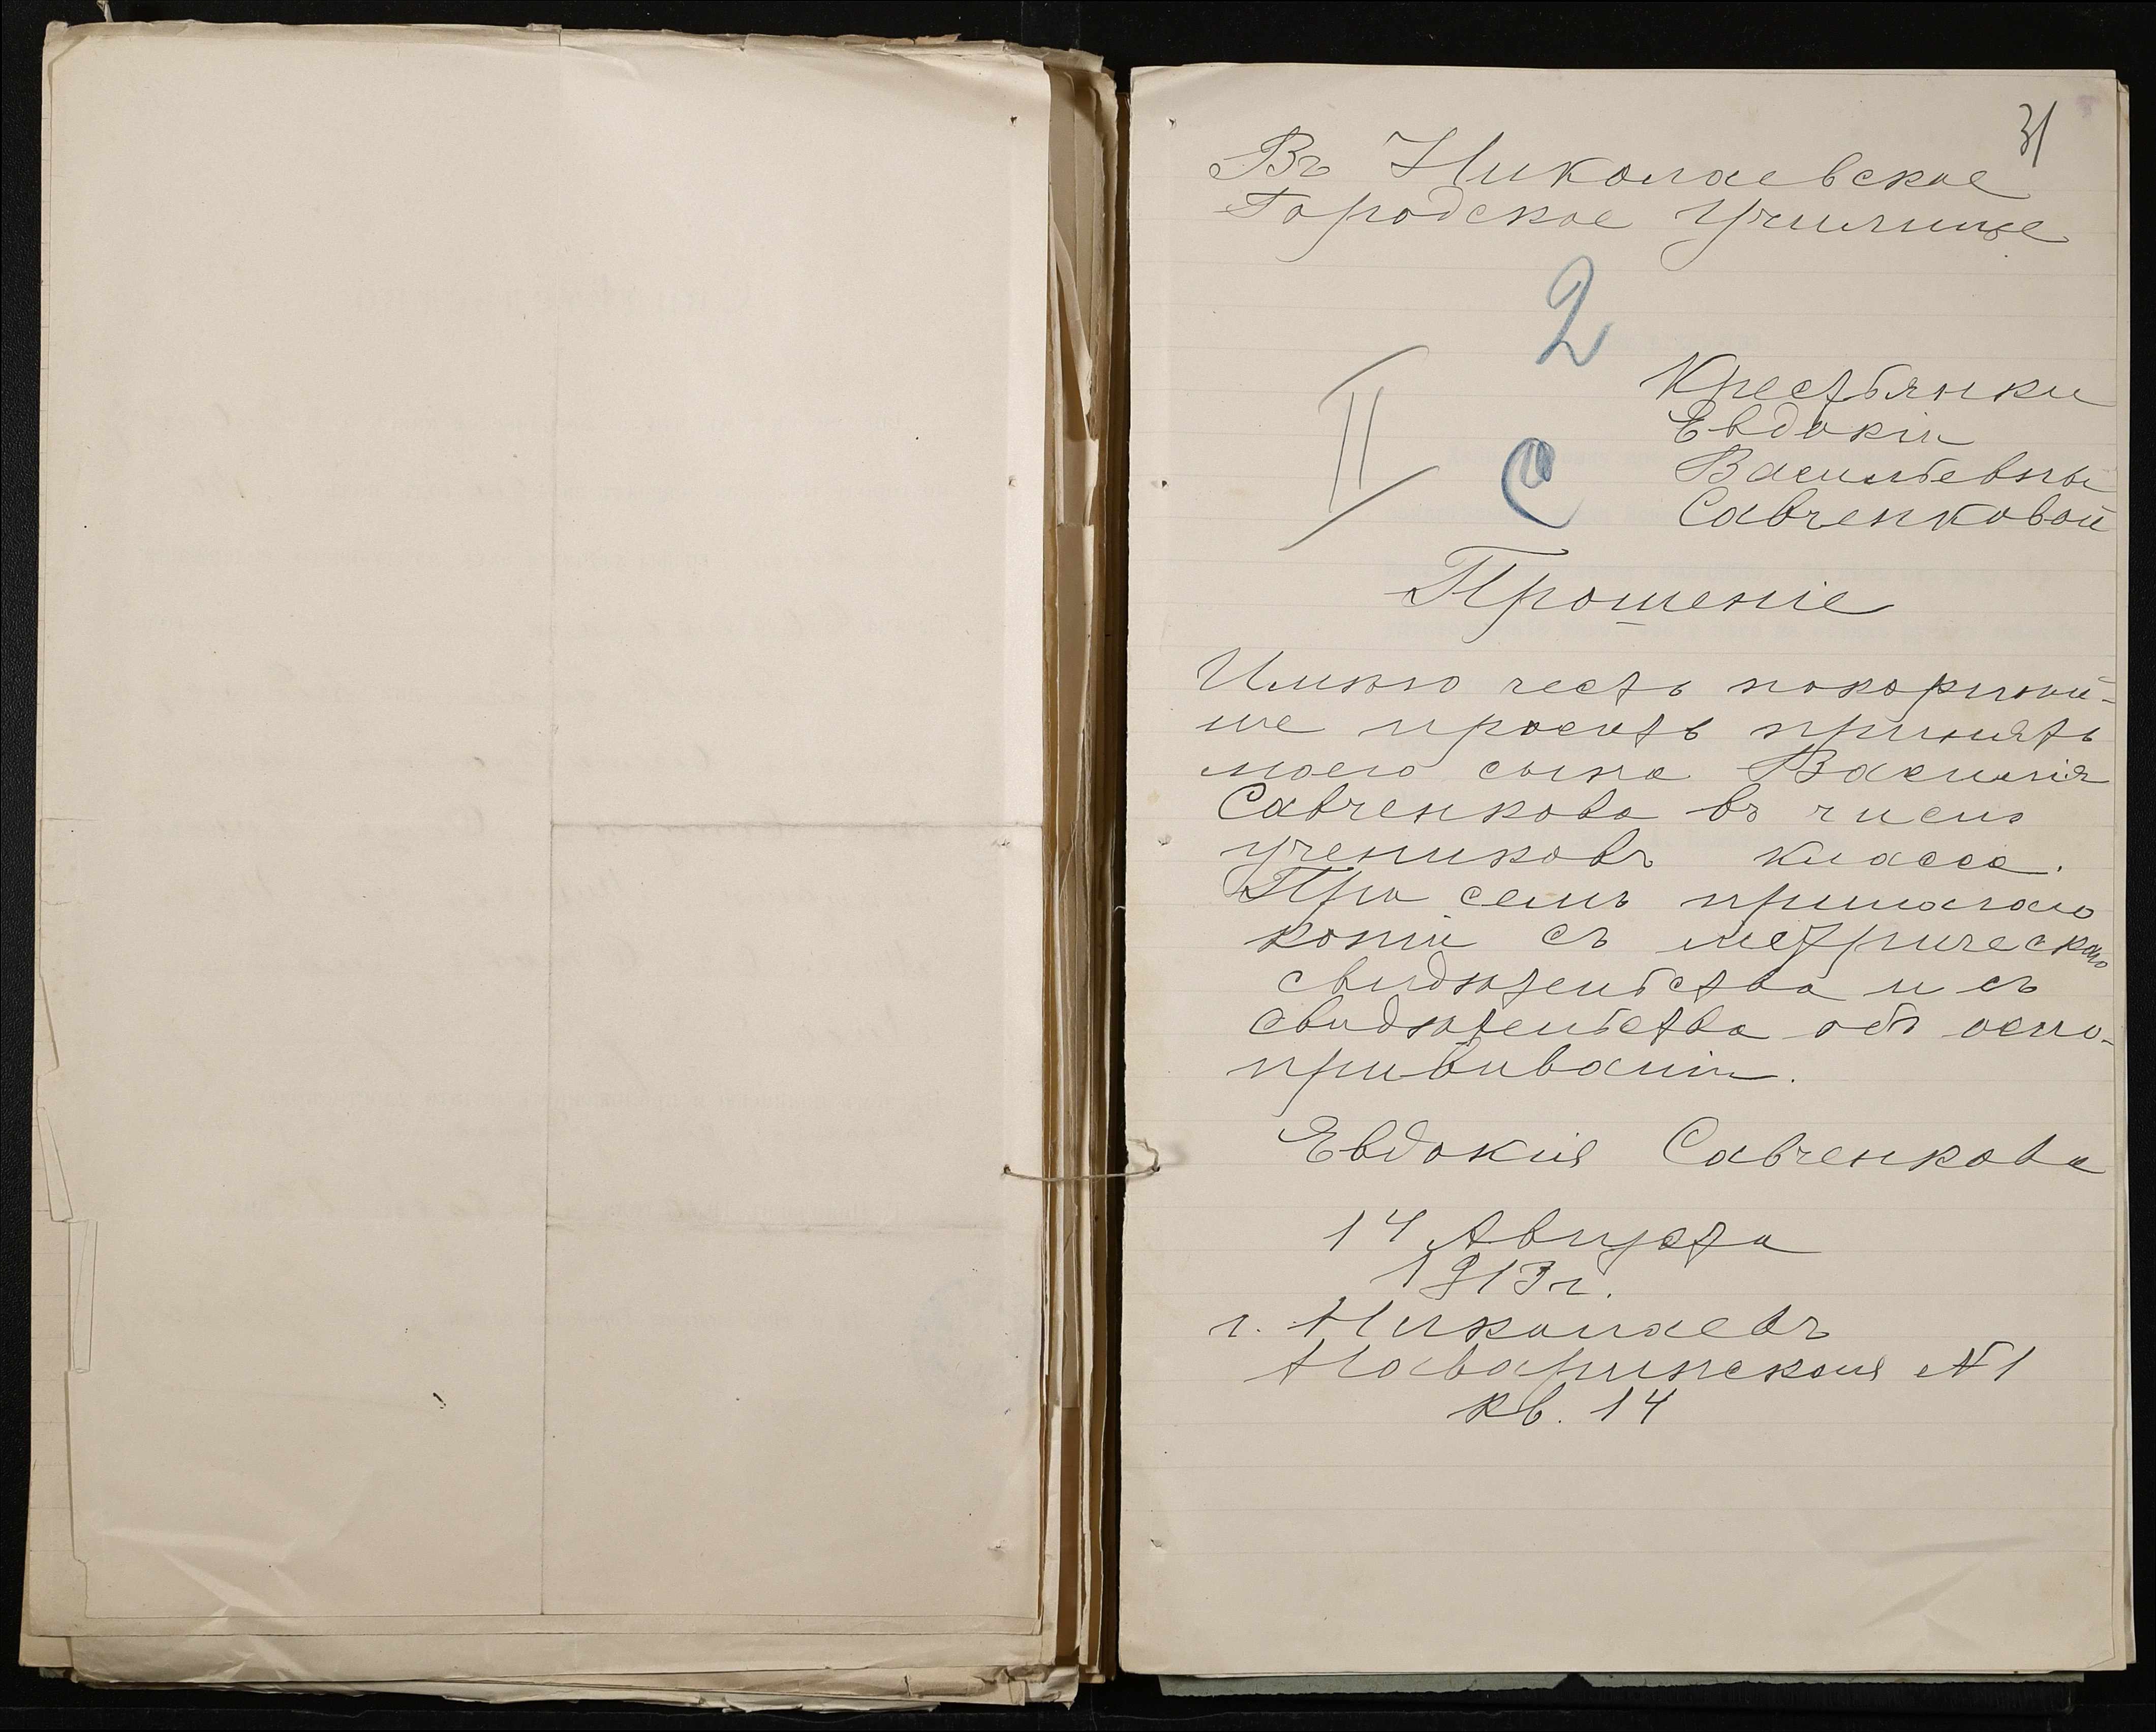 31
Въ Николаевское
Городское Училище
2
II
С
Крестьянки
Евдокіи
Васильевны
Савченковой
Прошеніе
Имѣю честь покорнѣй-
ше просить принять
моего сына Василія
Савченкова въ число
учениковъ класса.
При семъ прилагаю
копіи съ метрическаго
свидѣтельства и съ
свидѣтельства объ оспо-
прививаніи.
Евдокия Савченкова
14 Августа
1913 г.
г. Николаевъ
Наваринская № 1
кв. 14